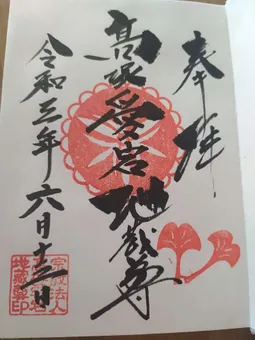 奉拝
髙愛宕地蔵尊
令和三年六月十三日
宗教法人
地蔵尊印